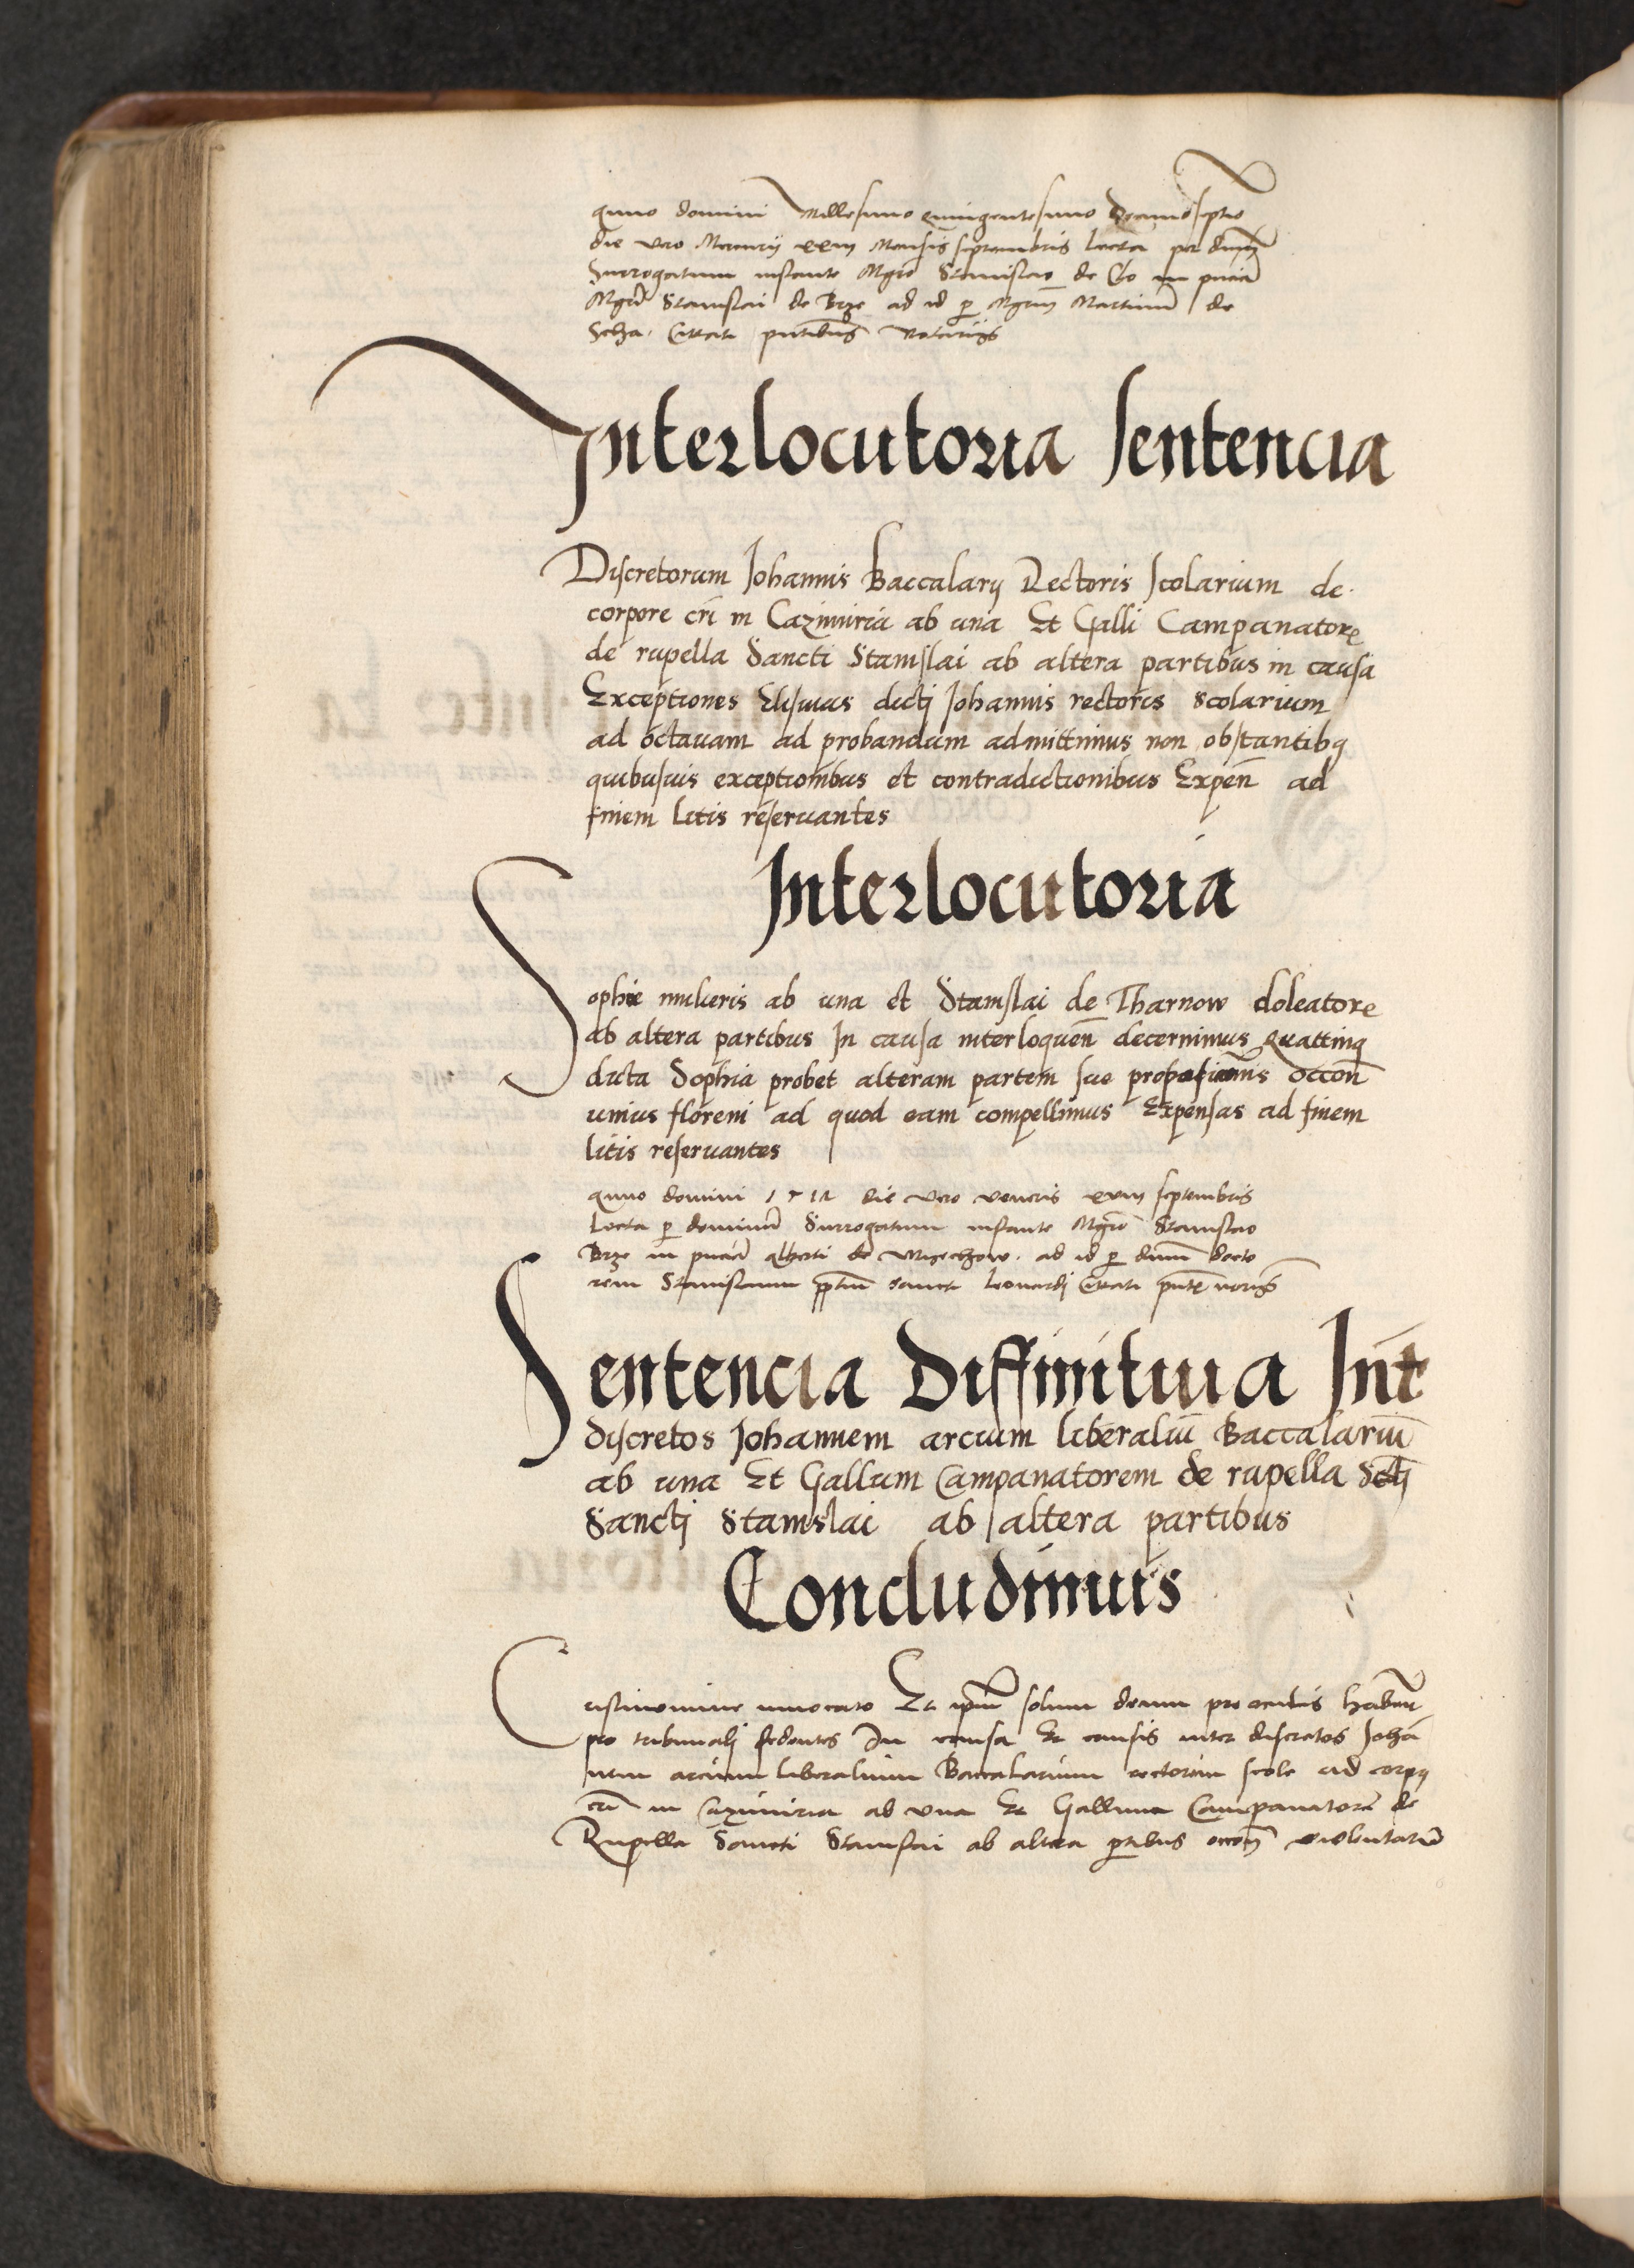 anno domini Millesimo quingentesimo decimoseptimo
die vero Mercurij xxiij Mensis septembris lecta per dnm
Surrogatum instante Mgro Stanislao de Clo in pncia
Mgri Stanislai de Brze ad id p Mgrm Martinum de
Scha. Citati pntibus notarijs
Interlocutoria sentencia
Discretorum Johannis Baccalarij Rectoris scolarium de
corpore cri in Cazimiria ab una Et Galli Campanatore
de rupella Sancti Stanislai ab altera partibus in causa
Exceptiones Elisiuas dicti Johannis rectoris scolarium
ad octauam ad probandum admittimus non obstantibq
quibusuis exceptionibus et contradictionibus Expen ad
finem litis reseruantes
Interlocutoria
Sophie mulieris ab una et Stanislai de Tharnow doleatore
ab altera partibus In causa interloquen decernimus Quattinq
dicta Sophia probet alteram partem sue proposicionis occon
unius floreni ad quod eam compellimus Expensas ad finem
litis reseruantes
anno domini 1517 die vero veneris xviij septembris
Lecta p dominum Surrogatum instante Mgro Stanislao
Brze in pncia alberti de ad id p dnm docto
rem Stanislaum pptum sancti Leonardi Citati pnte noris
Sentencia Diffinitiua Int
discretos Johannem arcium liberaliu Baccalariu
ab una Et Gallum Campanatorem de rupella Scti
Sancti Stanislai ab altera partibus
Concludimus
Cristi nomine inuocato Et ipm solum deum pre oculis haben
pro tribunali sedentes In causa Et causis inter discretos Johan
nem arcium liberalium Baccalarium rectorem scole ad corpq
cri in Cazimiria ab vna Et Gallum Campanatore de
Rupella Sancti Stanislai ab altera ptibus occon violentaru